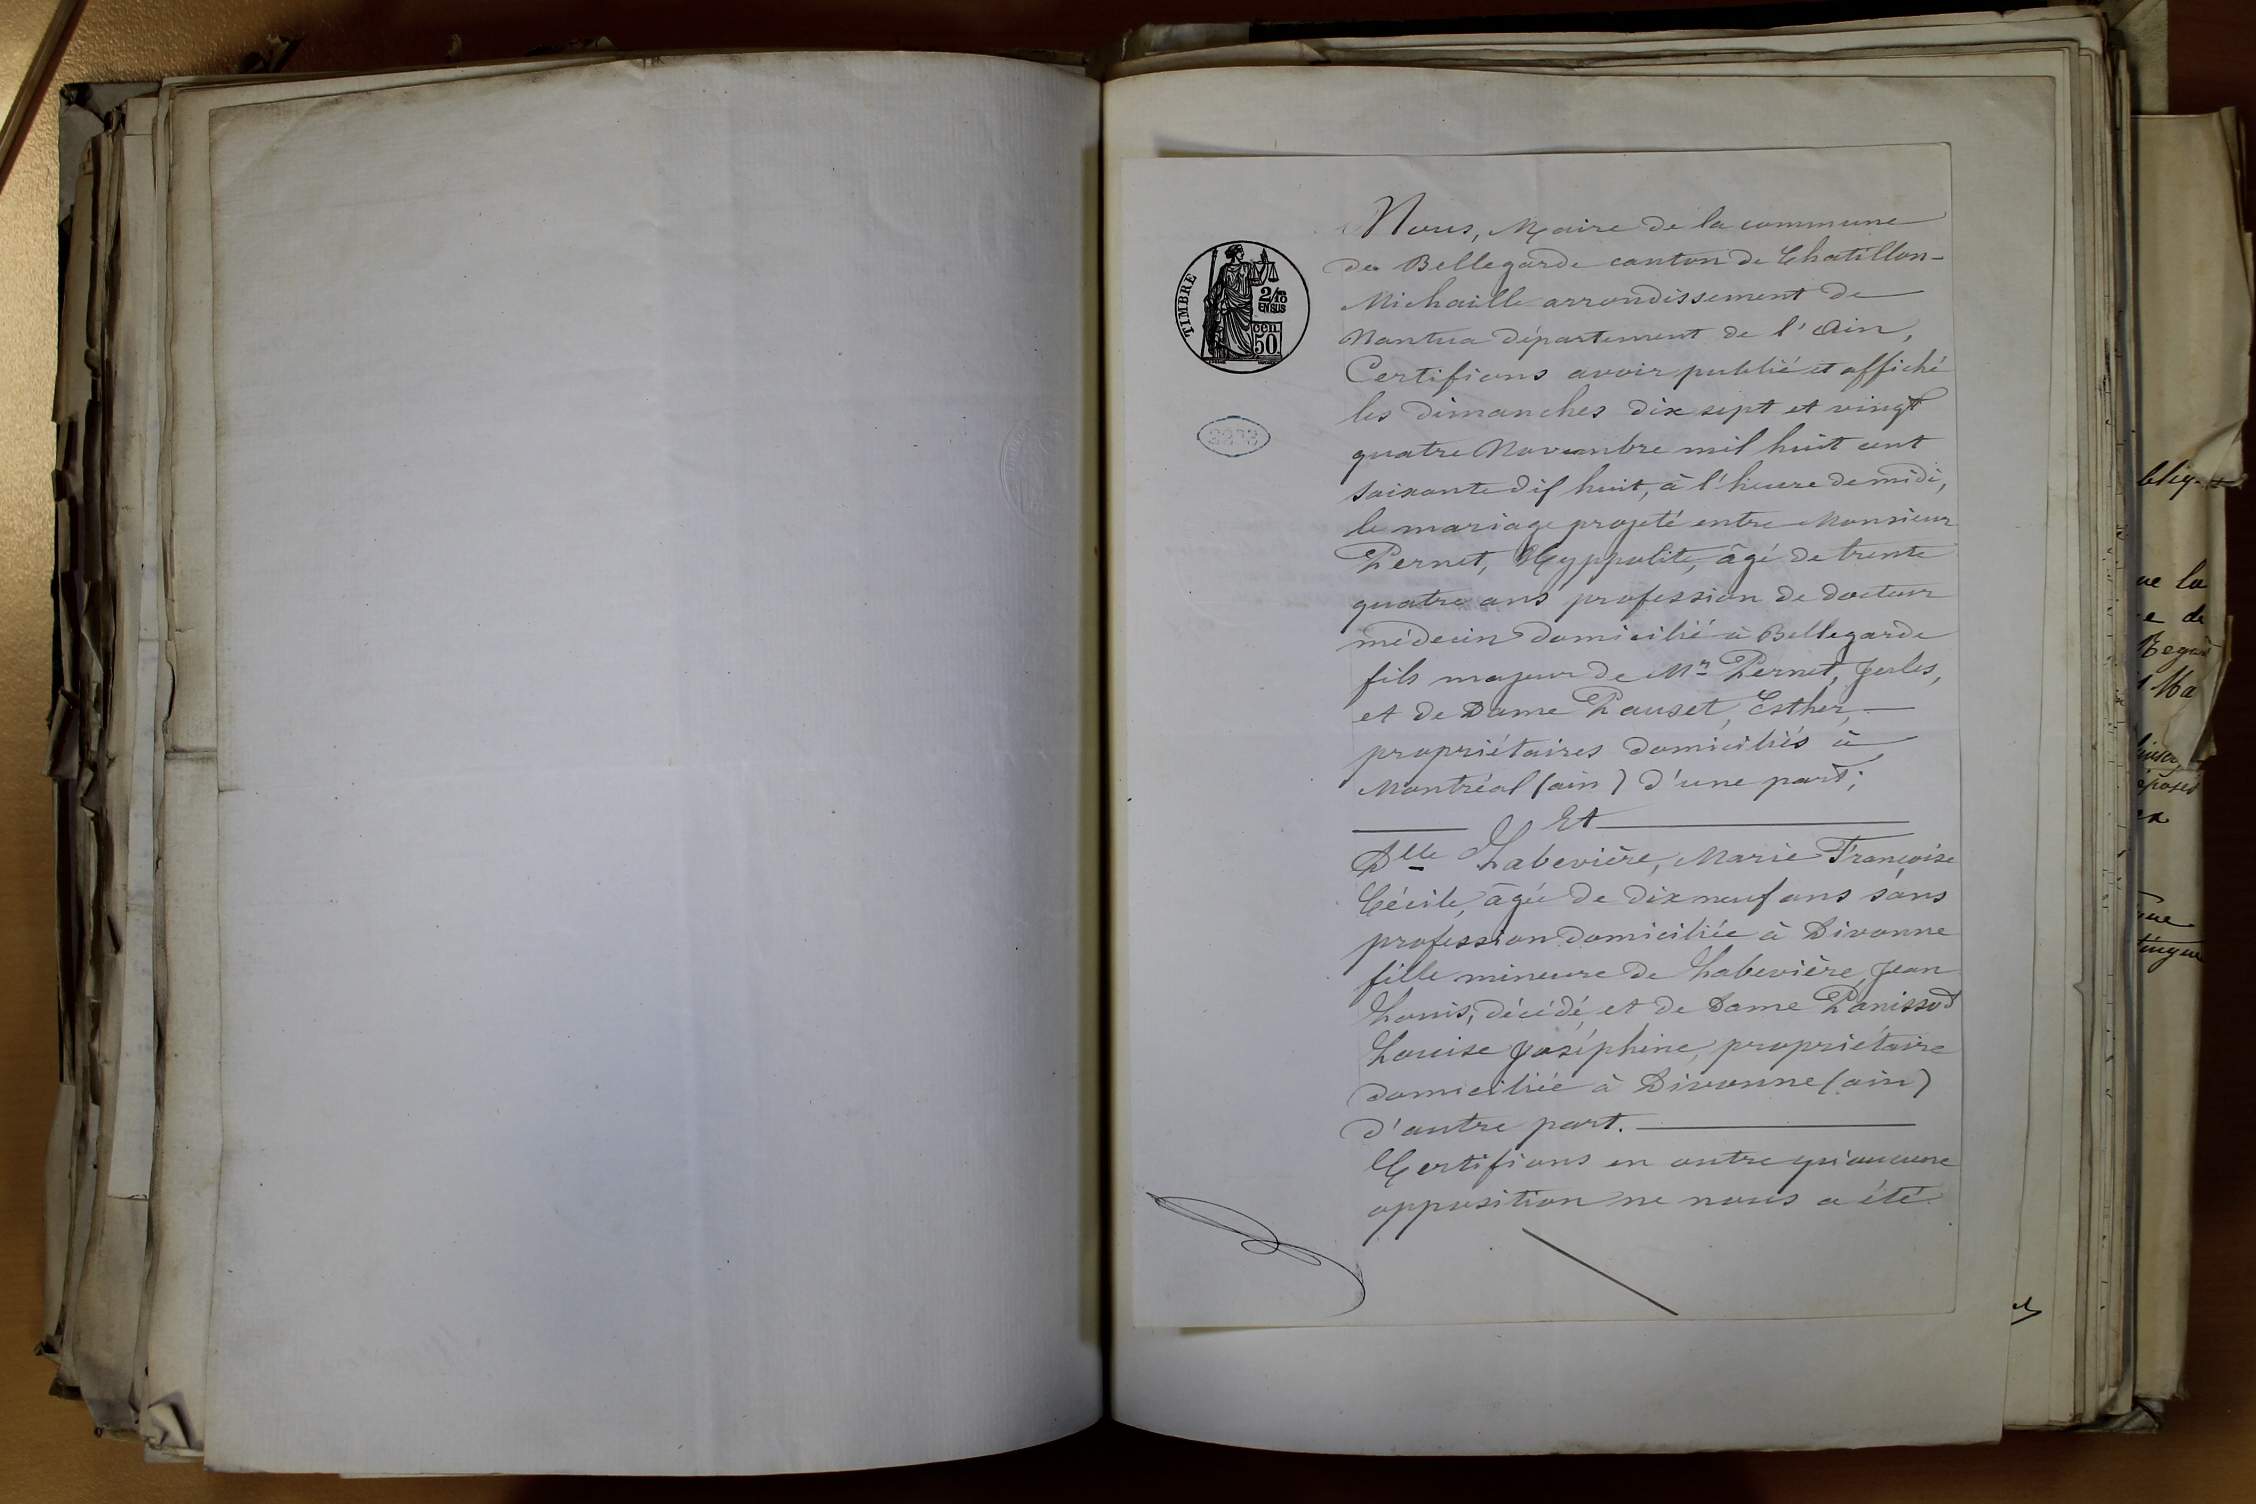 TIMBRE
2/10
EN SUS
CEN.
50
Nous, Maire de la commune
de Bellegarde canton de Chatillon-
Michaille arrondissement de
Nantua département de l'Ain,
Certifions avoir publié et affiché
les dimanches dix sept et vingt
quatre Novembre mil huit cent
soixante dif huit, à l'heure de midi,
le mariage projeté entre Monsieur
Pernet, Hyppolite, âgé de trente
quatre ans profession de docteur
médecin domicilié à Bellegarde
fils majeur de Mr Pernet, Jules,
et de Dame Pauset, Esther,
propriétaires domiciliés à
Montréal (ain) d'une part;
Et
Dlle Labevière, Marie Françoise
Cécile, âgée de dix neuf ans sans
profession domiciliée à Divonne
fille mineure de Labevière, Jean
Louis, décédé, et de Dame Panissod
Louise Joséphine, propriétaire
domiciliée à Divonne (ain)
d'autre part.
Certifions en outre qu'aucune
opposition ne nous a été